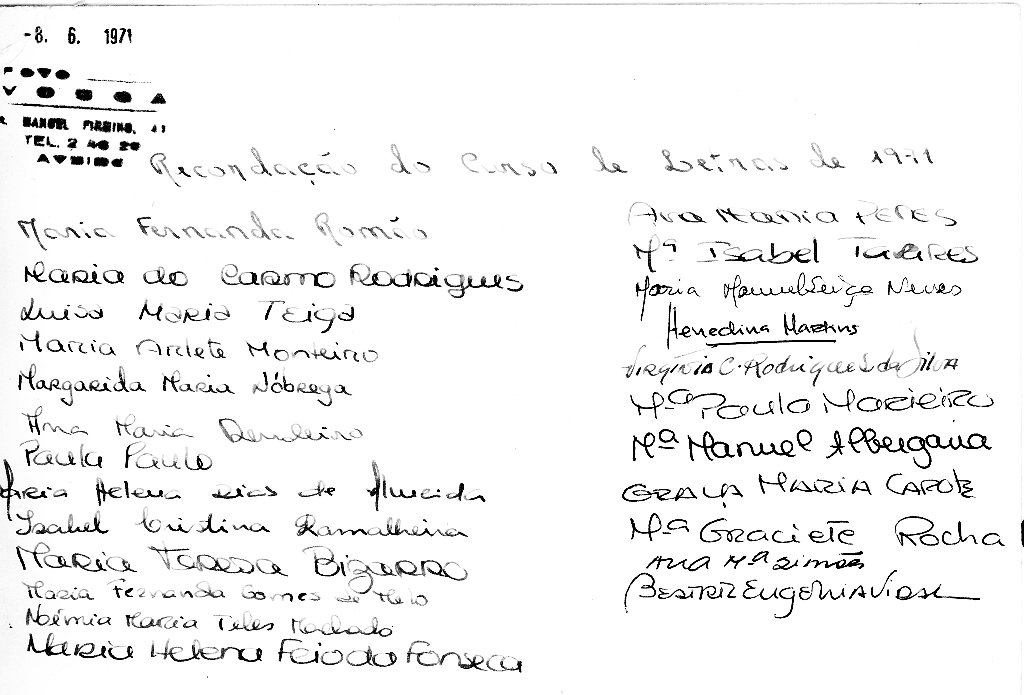 -8. 6. 1971
FOTO
VOUGA
R. MANUEL FIRMINO, 41
TEL. 2
AVEIRO
Recordação do Curso de Letras de 1971
Maria Fernanda Romão
Maria do Carmo Rodrigues
Luisa Maria Teiga
Maria Arlete Monteiro
Margarida Maria Nóbrega
Ana Maria
Paula Paulo
Maria Helena Dias de Almeida
Isabel Cristina Ramalheira
Maria Teresa Bizarro
Maria Fernanda Gomes de Melo
Noémia Maria Teles Machado
Maria Helena Feio da Fonseca
Ana Maria Peres
Mª Isabel Tavares
Maria Manuel Seiça Neves
Henedina Martins
Virgínia C. Rodrigues da Silva
Mª Paula
Mª Manuel Albergaria
Graça Maria Capote
Mª Graciete Rocha
Ana Mª Simões
Beatriz Eugenia Vidal